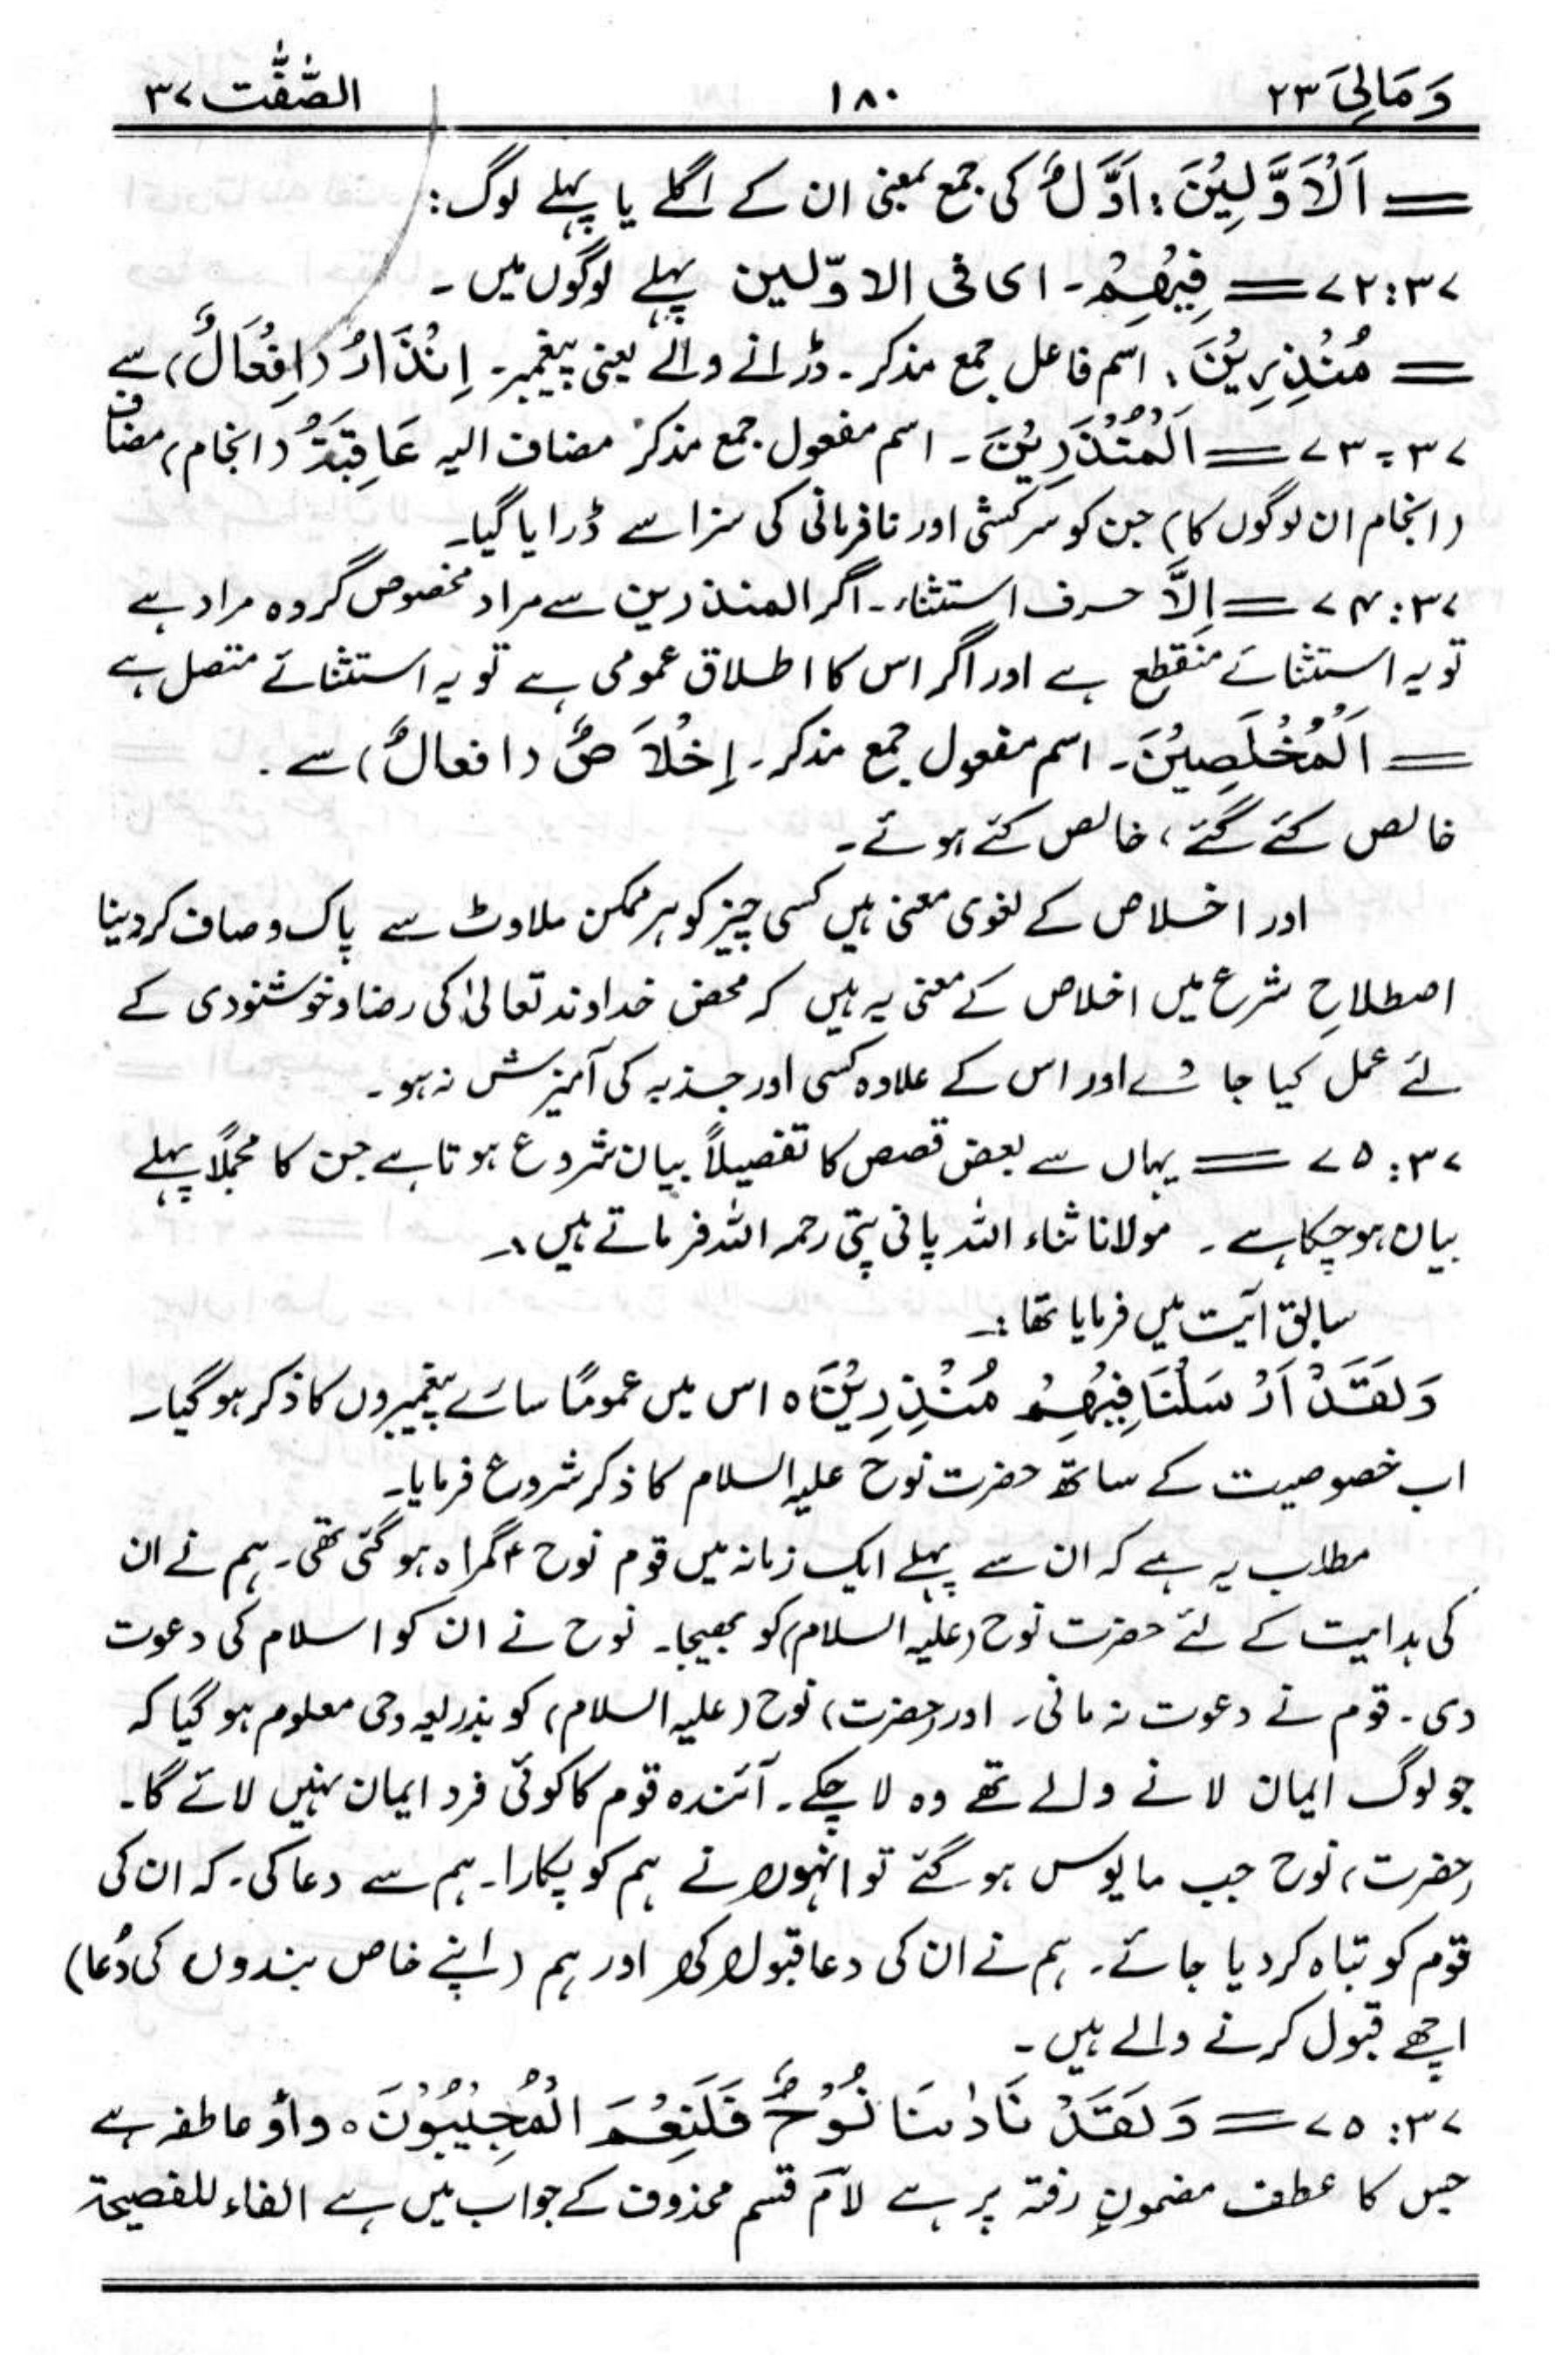 وَمَالِیَ ۲۳ ۱۸۰ الصّٰٓفّٰت ۳۷
= اَلْاَوَّلِیْنَ: اَوَّلٌ کی جمع بمعنی ان کے اگلے یا پہلے لوگ:
۳۷:۷۲ = فِیْھِمْ۔ ای فی الاوّلین پہلے لوگوں میں۔
= مُنْذِرِیْنَ، اسم فاعل جمع مذکر۔ ڈرانے والے یعنی پیغمبر۔ اِنْذَارٌ (اِفْعَالٌ) سے
۳۷:۷۳ = اَلْمُنْذَرِیْنَ۔ اسم مفعول جمع مذکر مضاف الیہ عَاقِبَۃُ (انجام) مضاف
(انجام ان لوگوں کا) جن کو سرکشی اور نافرمانی کی سزا سے ڈرایا گیا۔
۳۷:۷۴ = اِلَّا حرف استثناء۔ اگر المنذرین سے مراد مخصوص گروہ مراد ہے
تو یہ استثنائے منقطع ہے اور اگر اس کا اطلاق عمومی ہے تو یہ استثنائے متصل ہے
= اَلْمُخْلَصِیْنَ۔ اسم مفعول جمع مذکر۔ اِخْلَاصٌ (افعالٌ) سے۔
خالص کئے گئے، خالص کئے ہوئے۔
اور اخلاص کے لغوی معنی ہیں کسی چیز کو ہر ممکن ملاوٹ سے پاک و صاف کر دینا
اصطلاحِ شرع میں اخلاص کے معنی یہ ہیں کہ محض خداوند تعالیٰ کی رضا و خوشنودی کے
لئے عمل کیا جائے اور اس کے علاوہ کسی اور جذبہ کی آمیزش نہ ہو۔
۳۷:۷۵ = یہاں سے بعض قصص کا تفصیلاً بیان شروع ہوتا ہے جن کا مجملاً پہلے
بیان ہو چکا ہے۔ مولانا ثناء اللہ پانی پتی رحمہ اللہ فرماتے ہیں:۔
سابق آیت میں فرمایا تھا:۔
وَلَقَدْ اَرْسَلْنَا فِیْھِمْ مُنْذِرِیْنَ ہ اس میں عموماً سارے پیغمبروں کا ذکر ہو گیا۔
اب خصوصیت کے ساتھ حضرت نوح علیہ السلام کا ذکر شروع فرمایا۔
مطلب یہ ہے کہ ان سے پہلے ایک زمانہ میں قوم نوح ؑ گمراہ ہو گئی تھی۔ ہم نے ان
کی ہدایت کے لئے حضرت نوح (علیہ السلام) کو بھیجا۔ نوح نے ان کو اسلام کی دعوت
دی۔ قوم نے دعوت نہ مانی۔ اور (حضرت) نوح (علیہ السلام) کو بذریعہ وحی معلوم ہو گیا کہ
جو لوگ ایمان لانے والے تھے وہ لا چکے۔ آئندہ قوم کا کوئی فرد ایمان نہیں لائے گا۔
(حضرت) نوح جب مایوس ہو گئے تو انہوں نے ہم کو پکارا۔ ہم سے دعا کی۔ کہ ان کی
قوم کو تباہ کر دیا جائے۔ ہم نے ان کی دعا قبول کی اور ہم (اپنے خاص بندوں کی دُعا)
اچھے قبول کرنے والے ہیں۔
۳۷:۷۵ = وَلَقَدْ نَادٰىنَا نُوْحٌ فَلَنِعْمَ الْمُجِیْبُوْنَ ہ واؤ عاطفہ ہے
جس کا عطف مضمونِ رفتہ پر ہے لاَم قسم محذوف کے جواب میں ہے الفاء للفصیحۃ